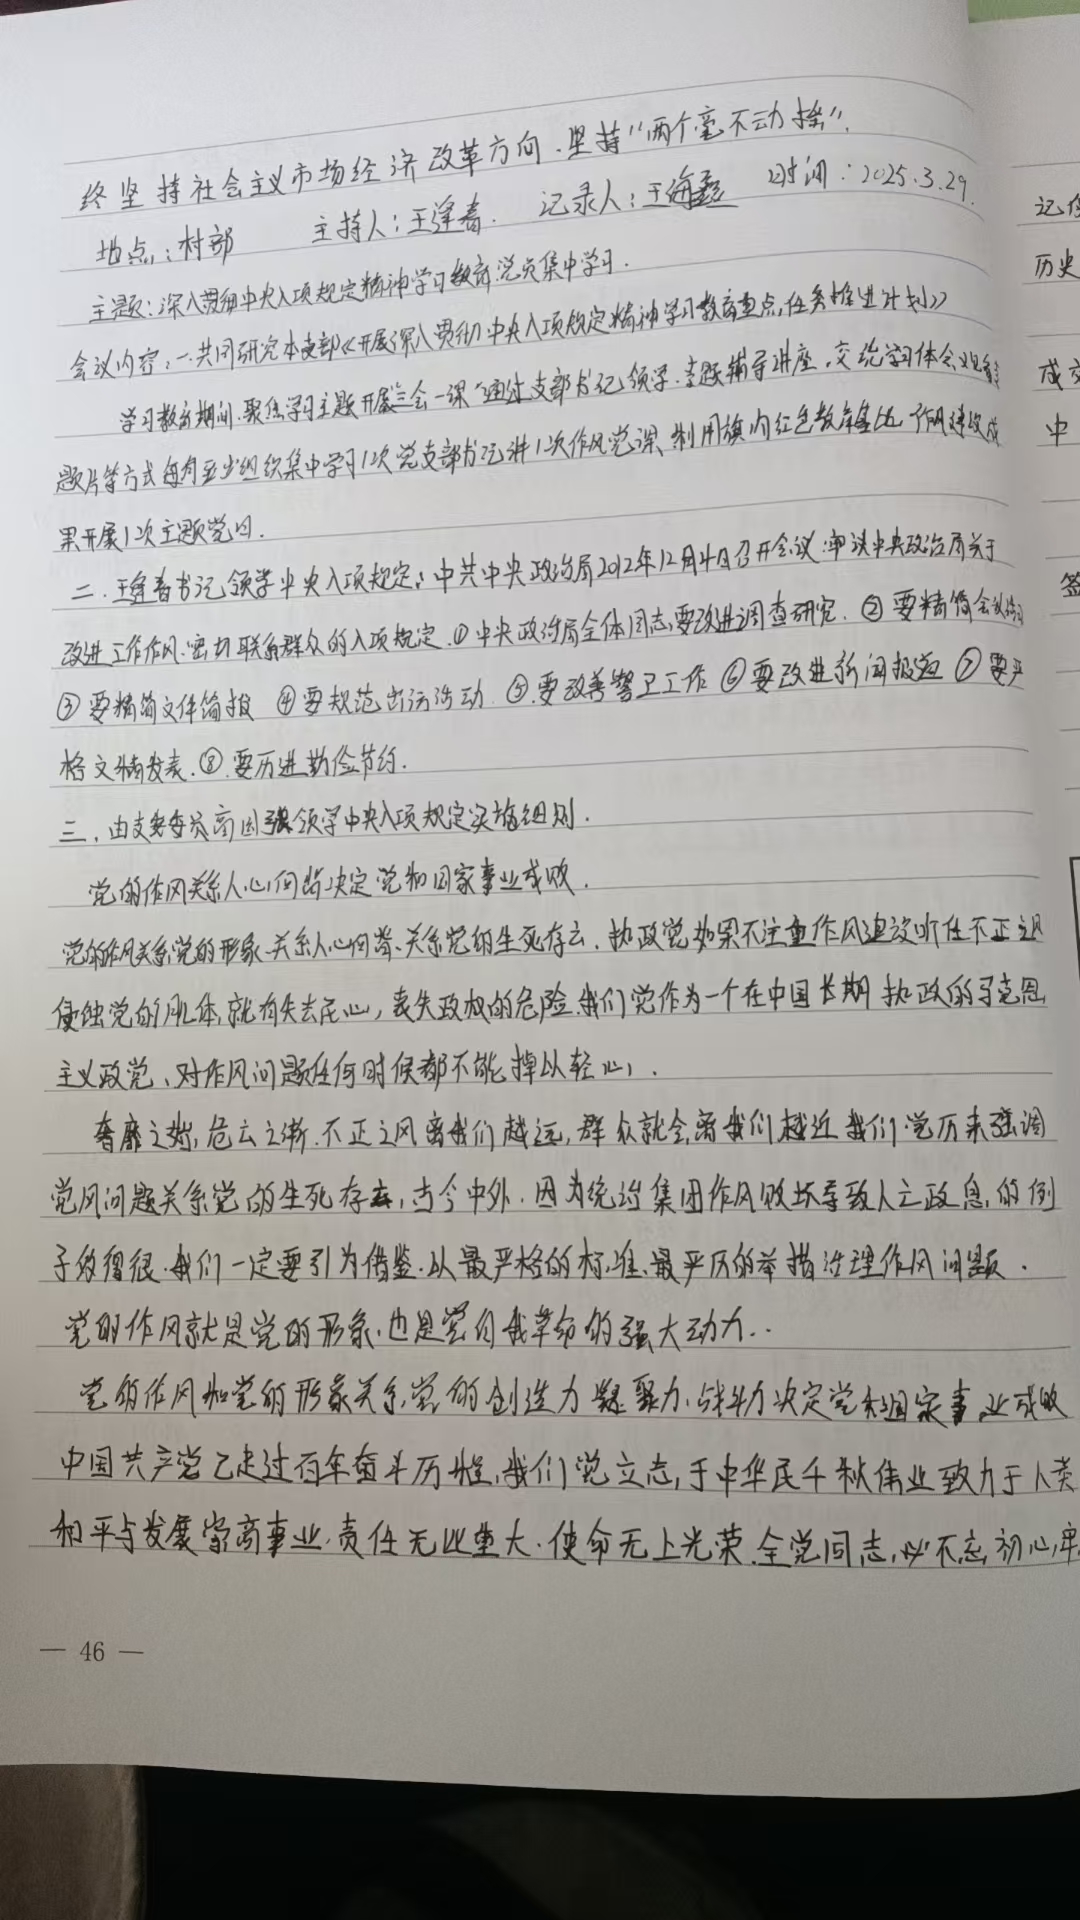 终坚持社会主义市场经济改革方向.坚持"两个毫不动摇".
地点:村部 主持人:王逢春. 记录人:王海 时间:2025.3.29.
主题:深入贯彻中央八项规定精神学习教育.党员集中学习.
会议内容:一.共同研究本支部《开展深入贯彻中央八项规定精神学习教育重点任务推进计划》
学习教育期间.聚焦学习主题开展"三会一课"通过支部书记领学.专题辅导讲座.交流学习体会观看专
题片等方式每月至少组织集中学习1次党支部书记讲1次作风党课、利用旗内红色教育基地 作风建设成
果开展1次主题党日.
二.王逢春书记领学中央八项规定:中共中央政治局2012年12月4日召开会议.审议中央政治局关于
改进工作作风.密切联系群众的八项规定.①中央政治局全体同志要改进调查研究.②要精简会议活动
③要精简文件简报 ④要规范出访活动.⑤.要改善警卫工作⑥要改进新闻报道⑦要严
格文稿发表.⑧.要历进勤俭节约.
三.由支委委员高国强领学中央八项规定实施细则.
党的作风关系人心向背决定党和国家事业成败.
党的作风关系党的形象、关系人心向背、关系党的生死存亡.执政党如果不注重作风建设听任不正之风
侵蚀党的肌体,就有失去民心,丧失政权的危险.我们党作为一个在中国长期执政的马克思
主义政党、对作风问题任何时候都不能掉以轻心,.
奢靡之始,危亡之渐.不正之风离我们越远,群众就会离我们越近 我们党历来强调
党风问题关系党的生死存亡,古今中外.因为统治集团作风败坏导致人亡政息,的例
子多得很.我们一定要引为借鉴.以最严格的标准.最严厉的举措治理作风问题.
党的作风就是党的形象.也是党自我革命的强大动力..
党的作风和党的形象关系党的创造力凝聚力、战斗力决定党和国家事业成败
中国共产党已走过百年奋斗历程,我们党立志,于中华民千秋伟业致力于人类
和平与发展崇高事业.责任无比重大.使命无上光荣.全党同志,必不忘初心,牢
— 46 —
记
历史
成
中
签